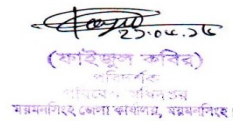 ২১.০৮.১৬
(ফাইজুল কবির)
পরিদর্শক
পরিবেশ অধিদপ্তর
ময়মনসিংহ জেলা কার্যালয়, ময়মনসিংহ।